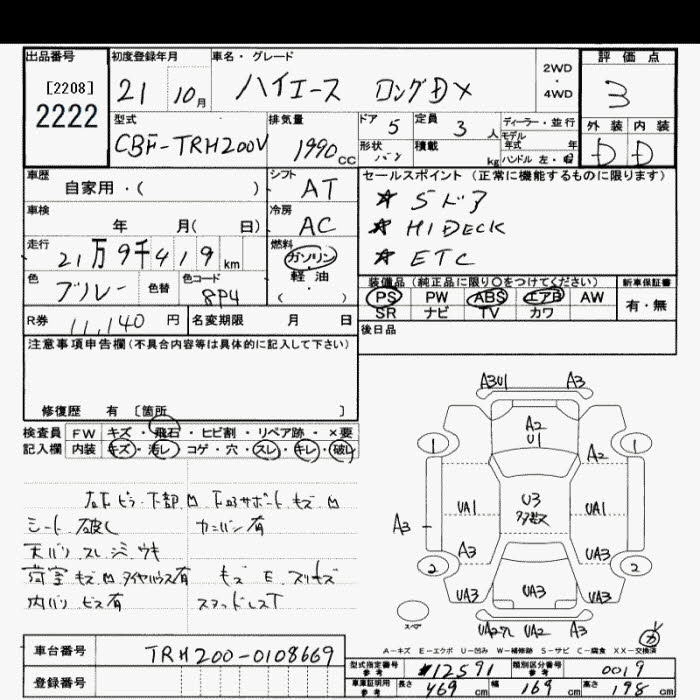 出品番号 初度登録年月 車名・グレード 評価点
[2208] 2222 21 10月 ハイエース ロングDX 2WD・4WD 3
型式 排気量 ドア 5 定員 3人 ディーラー・並行 外装 内装
CBF-TRH200V 1990cc 形状 バン 積載 kg モデル年式 年 ハンドル 左・ D D
車歴 自家用・( ) シフト AT セールスポイント(正常に機能するものに限ります)
☆ 5ドア
車検 年 月( 日) 冷房 AC ☆ HIDECK
走行 21万9千419km 燃料 ガソリン・軽油 ( ) ☆ ETC
色 ブルー 色替 色コード 8P4 装備品(純正品に限り○をつけてください) 新車保証書
PS PW ABS エアB AW 有・無
SR ナビ TV カワ
R券 11,140円 名変期限 月 日 後日品
注意事項申告欄(不具合内容等は具体的に記入して下さい)
修復歴 有 [箇所 ]
検査員 FW キズ・飛石・ヒビ割・リペア跡・×要
記入欄 内装 キズ・汚レ・コゲ・穴・スレ・キレ・破レ
シート 破レ
天バリ スレ シミ ウキ
内バリ ビス有
A3U1 A3
A2
U1
1 1
A2
UA1 U3 UA1
多数
A3
A3 UA3
2 2
UA3 UA3 UA3
UA2 A3
スペア
A-キズ E-エクボ U-凹み W-補修跡 S-サビ C-腐食 XX-交換済
車台番号 TRH200-0108669 型式指定番号 参考 #12591 類別区分番号 参考 0019
登録番号 車庫証明用 参考 長さ 469cm 幅 169cm 高さ 198cm